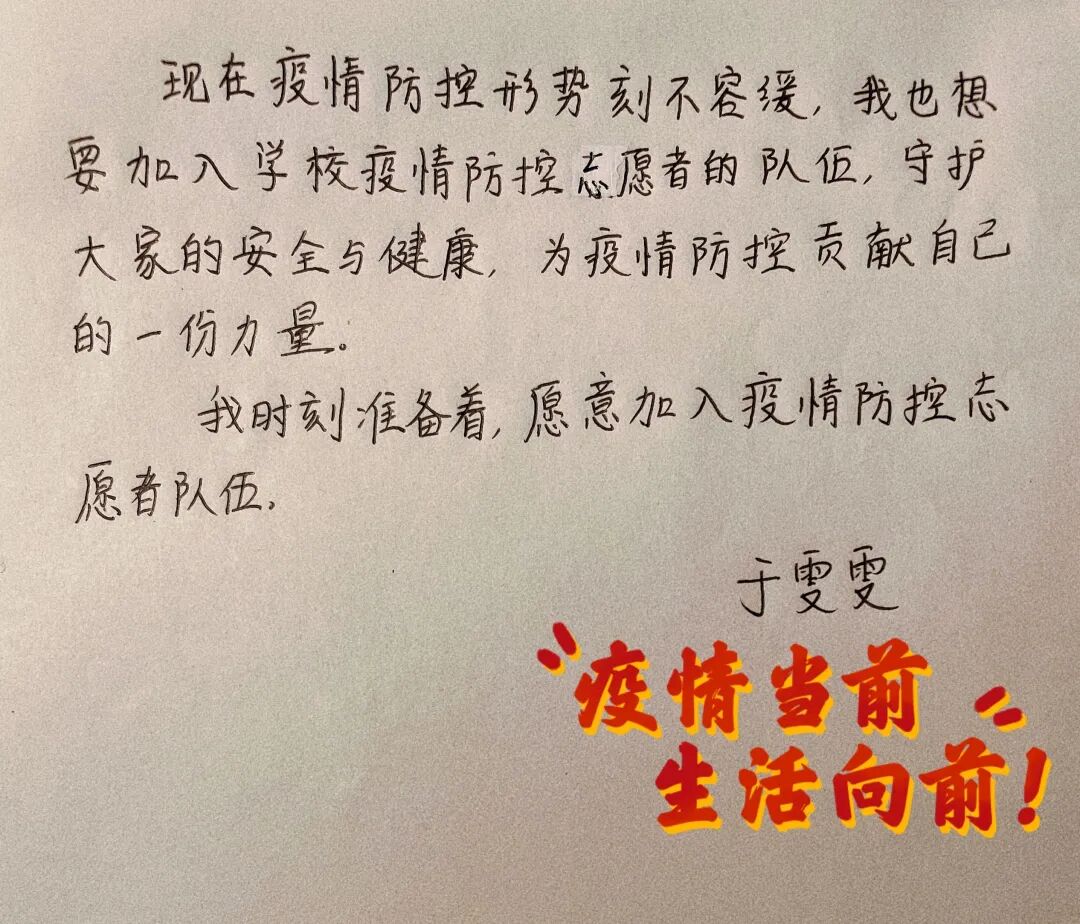 现在疫情防控形势刻不容缓，我也想
要加入学校疫情防控志愿者的队伍，守护
大家的安全与健康，为疫情防控贡献自己
的一份力量。
我时刻准备着，愿意加入疫情防控志
愿者队伍。
于雯雯
疫情当前
生活向前！